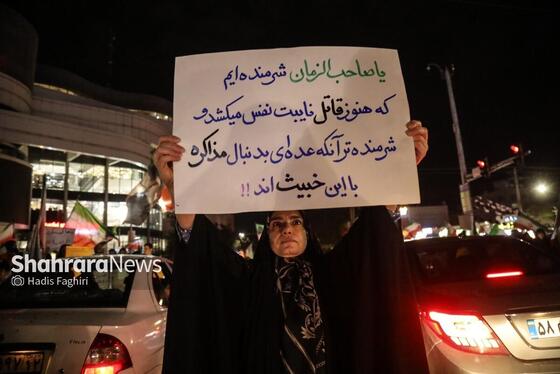 یا صاحب الزمان شرمنده ایم
که هنوز قاتل نایبت نفس میکشد و
شرمنده تر آنکه عده ای بدنبال مذاکره
با این خبیث اند !!
ShahraraNEWS
© Hadis Faghiri